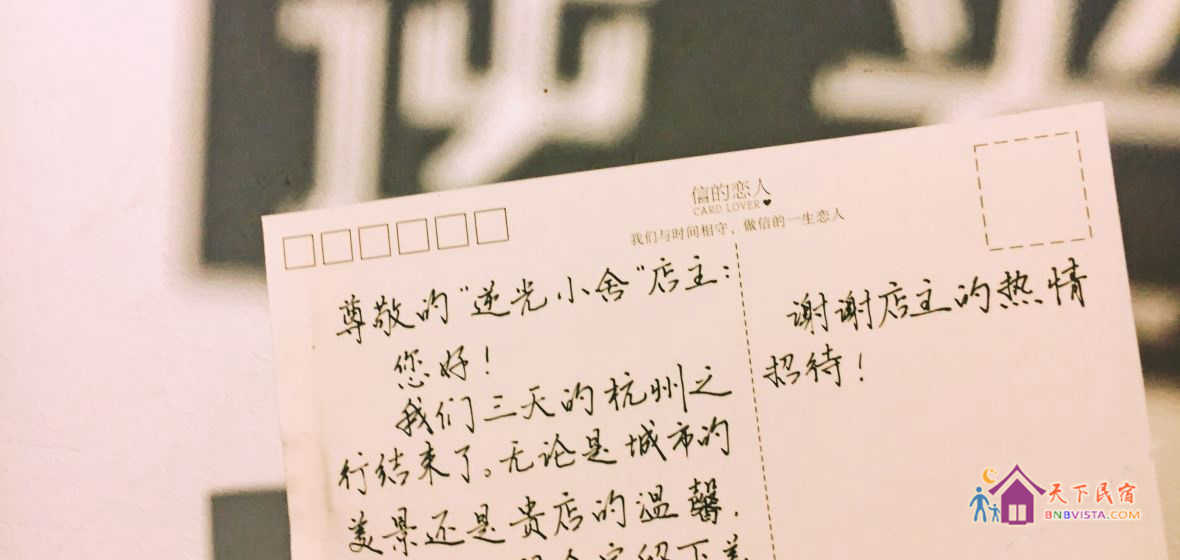 信的恋人
CARD LOVER
我们与时间相守，做信的一生恋人
尊敬的“逆光小舍”店主：
您好！
我们三天的杭州之
行结束了。无论是城市的
美景还是贵店的温馨，
留下美
谢谢店主的热情
招待！
天下民宿
BNBVISTA.COM